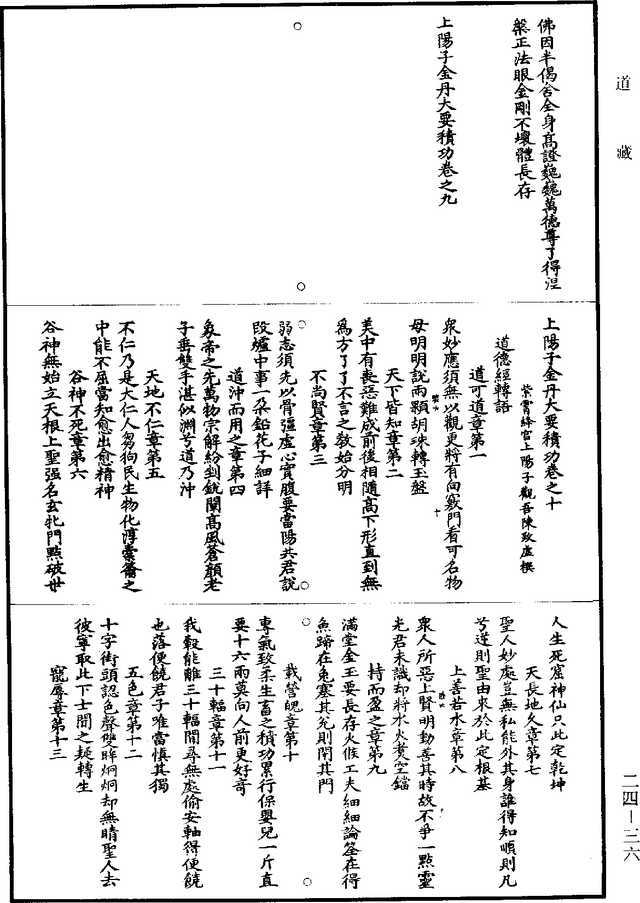 道藏
佛因半偈舍全身高證巍巍萬德尊了得涅
槃正法眼金剛不壞體長存
上陽子金丹大要積功卷之九
上陽子金丹大要積功卷之十
紫霄絳宮上陽子觀吾陳致虛撰
道德經轉語
道可道章第一
衆妙應須無以觀更將有向竅門看可名物
母明明說兩顆胡珠轉玉盤
天下皆知章第二
美中有喪惡難成前後相隨高下形直到無
爲方了了不言之教始分明
不尚賢章第三
弱志須先以骨强虛心實腹要當陽共君說
段爐中事一朶鉛花子細詳
道沖而用之章第四
象帝之先萬物宗解紛剉銳闡高風蒼顏老
子垂雙手湛似淵兮道乃沖
天地不仁章第五
不仁乃是大仁人芻狗民生物化淳橐籥之
中能不屈當知愈出愈精神
谷神不死章第六
谷神無始立天根上聖强名玄牝門點破世
人生死窟神仙只此定乾坤
天長地久章第七
聖人妙處豈無私能外其身誰得知順則凡
兮逆則聖由來於此定根基
上善若水章第八
衆人所惡上賢明動善其時故不爭一點靈
光君未識却將水火煑空鐺
持而盈之章第九
滿堂金玉要長存火候工夫細細論筌在得
魚蹄在兔塞其兌則閉其門
載營魄章第十
專氣致柔生畜之積功累行保嬰兒一斤直
要十六兩莫向人前更好奇
三十輻章第十一
我轂能離三十輻間尋無處偷安軸得便饒
也落便饒君子唯當愼其獨
五色章第十二
十字街頭認色聲雙眸炯炯却無睛聖人去
彼寧取此下士聞之疑轉生
寵辱章第十三
二四—三六